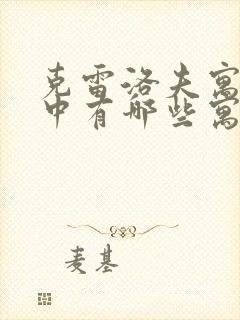 克雷洛夫寓
中有哪些寓
麦基